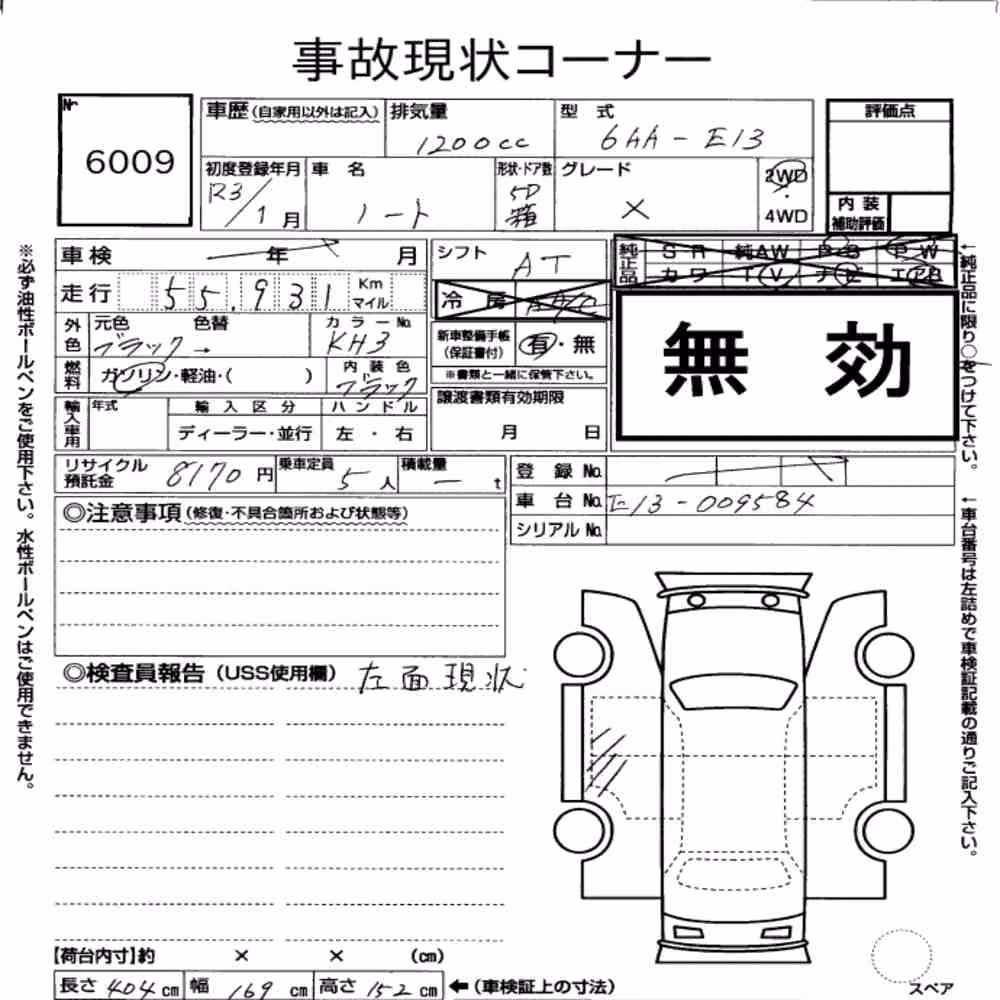 事故現状コーナー
№ 6009
車歴(自家用以外は記入) 排気量 1200cc 型式 6AA-E13 評価点
初度登録年月 R3/1月 車名 ノート 形状・ドア数 5D 箱 グレード X 2WD・4WD
内装補助評価
車検 年 月 シフト AT 純正品 SR 純AW PS PW
カワ TV ナビ エアB
走行 55.931 Km マイル 冷房 AAC
外色 元色 色替 ブラック→ カラー№ KH3 新車整備手帳(保証書付) 有・無
※書類と一緒に保管下さい。
燃料 ガソリン・軽油・( ) 内装色 ブラック
無効
輸入車用 年式 輸入区分 ハンドル 譲渡書類有効期限
ディーラー・並行 左・右 月 日
リサイクル預託金 8170円 乗車定員 5人 積載量 ー t 登録№
車台№ E13-009584
シリアル№
◎注意事項(修復・不具合箇所および状態等)
◎検査員報告(USS使用欄) 左面現状
【荷台内寸】約 × × (cm)
長さ 404cm 幅 169cm 高さ 152cm ←(車検証上の寸法)
スペア
※必ず油性ボールペンをご使用下さい。水性ボールペンはご使用できません。
←純正品に限り○をつけて下さい。
←車台番号は左詰めで車検証記載の通りご記入下さい。